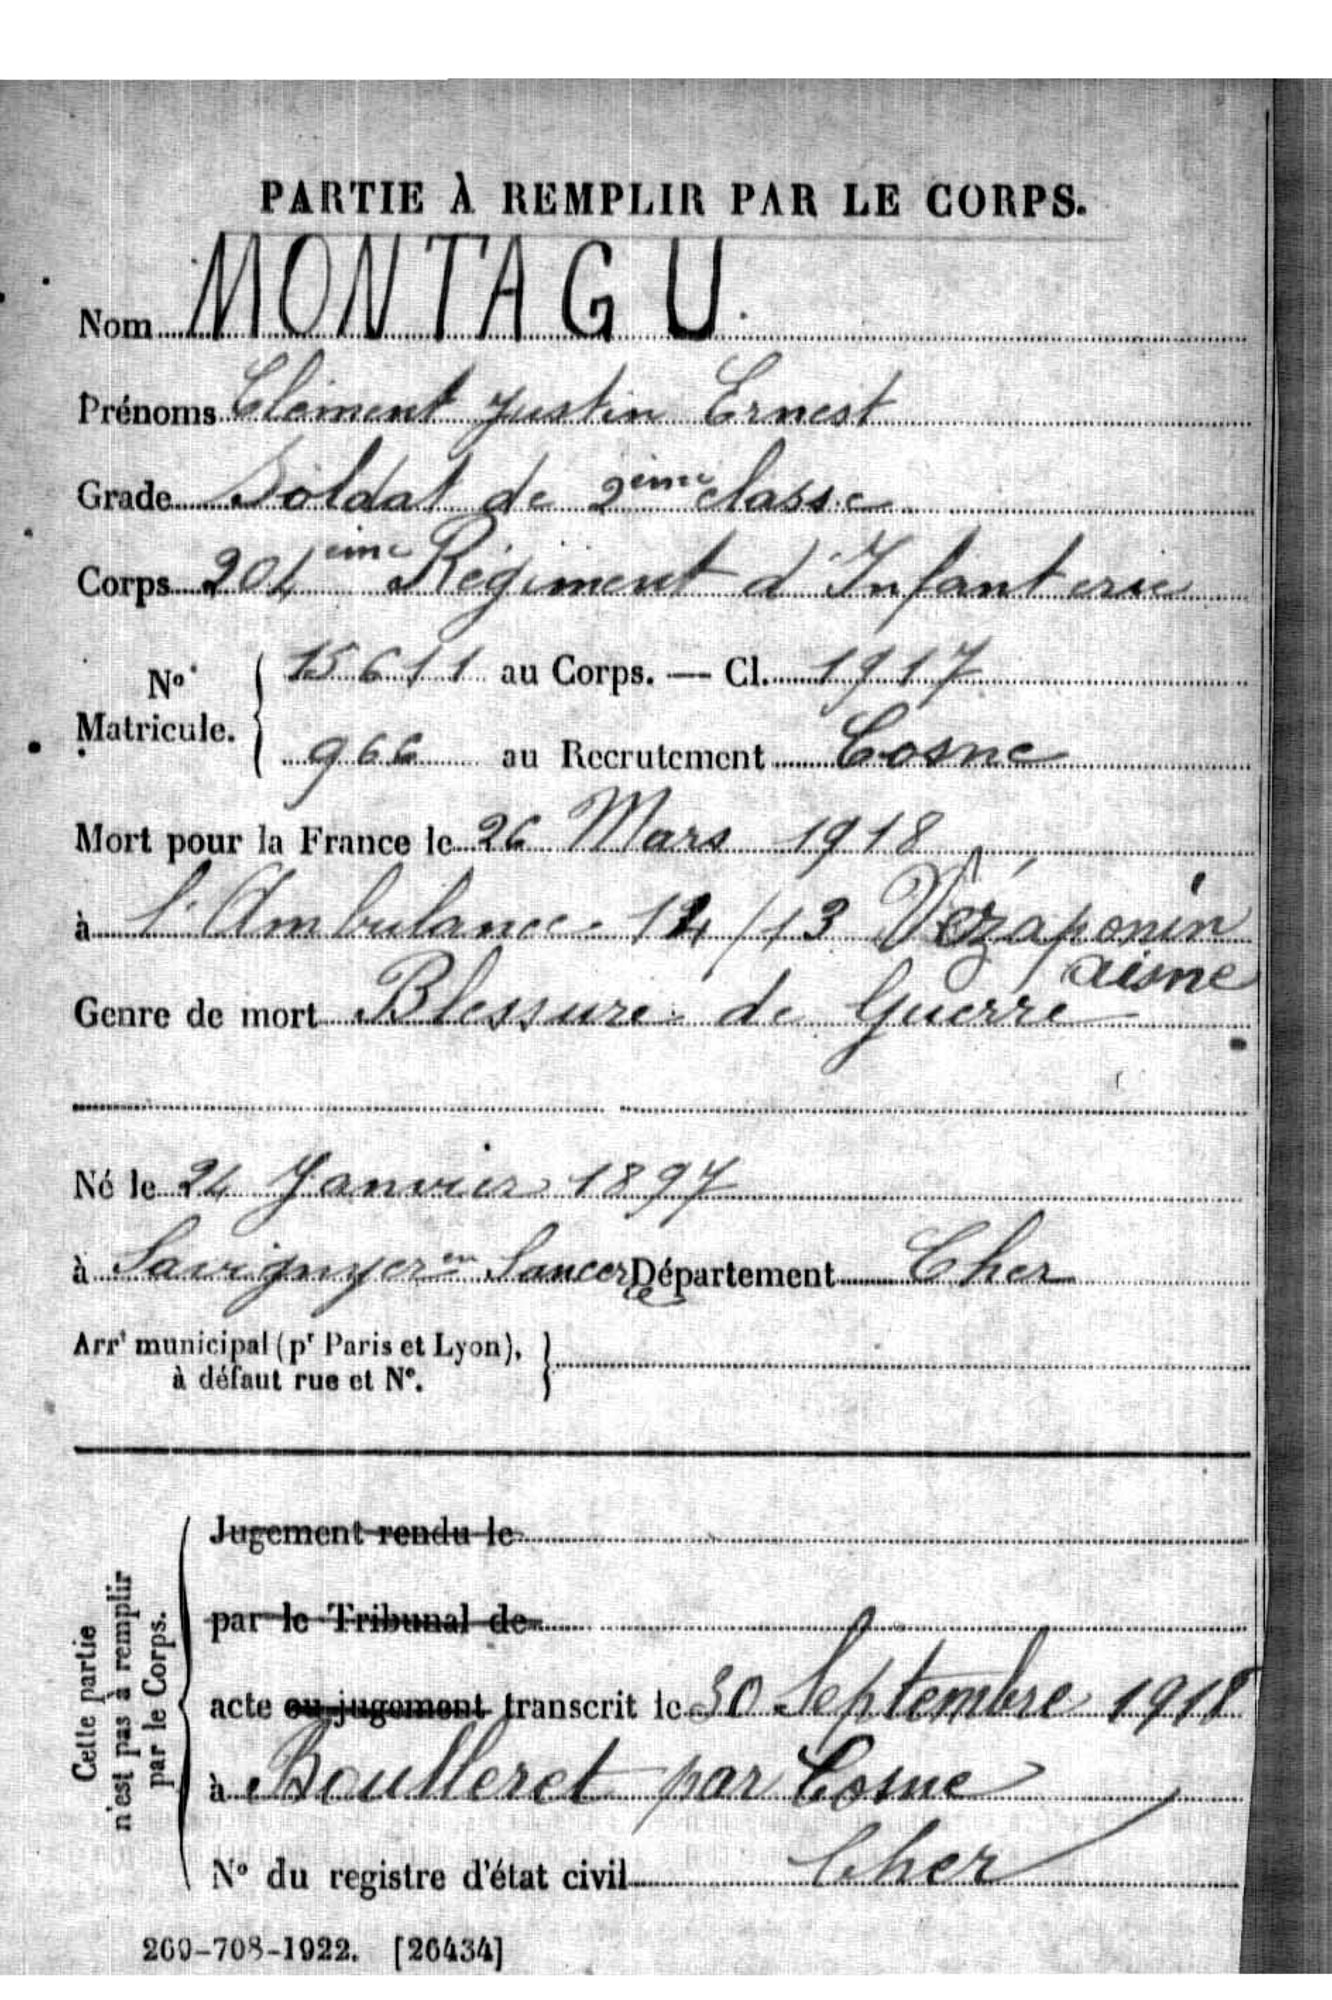 PARTIE À REMPLIR PAR LE CORPS.
Nom MONTAGU.
Prénoms Clément Justin Ernest
Grade Soldat de 2ème classe
Corps 204ème Régiment d'Infanterie
No Matricule. 15611 au Corps. — Cl. 1917
966 au Recrutement Cosne
Mort pour la France le 26 Mars 1918
à l'Ambulance 14/13 Vézaponin
aisne
Genre de mort Blessure de Guerre
Né le 24 Janvier 1897
à en Sancerre Département Cher
Arrt municipal (pr Paris et Lyon),
à défaut rue et N°.
Cette partie
n'est pas à remplir
par le Corps.
Jugement rendu le
par le Tribunal de
acte ou jugement transcrit le 30 Septembre 1918
à Boulleret par Cosne
N° du registre d'état civil Cher
260-708-1922. [26434]